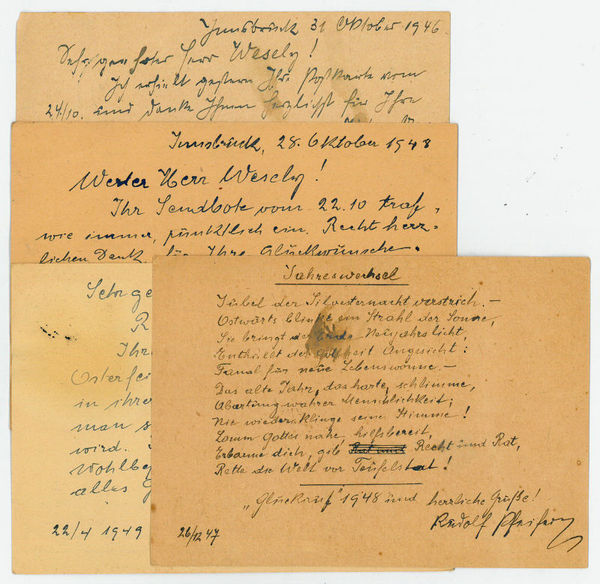 Innsbruck 31 Oktober 1946.
Sehr geehrter Herr Wesely!
Ich erhielt gestern Ihre Postkarte vom
24/10. und danke Ihnen herzlichst für Ihre
Innsbruck, 28. Oktober 1948
Werter Herr Wesely!
Ihr Sendbote vom 22.10 traf,
wie immer, pünktlich ein. Recht herz-
lichen Dank für Ihre Glückwünsche.
Sehr ge
Ihr
Osterfei
in ihrer
man s
wird.
Wohlbe
alles
22/4 1949
Jahreswechsel
Jubel der Silvesternacht verstrich. –
Ostwärts blinkt ein Strahl der Sonne,
Sie bringt der Erde Neujahrslicht,
Enthüllt der Angesicht:
Fanal für neue Lebenswonne. –
Das alte Jahr, das harte, schlimme,
Abartung wahrer Menschlichkeit;
Nie wiederklinge seine Stimme!
Lamm Gottes nahe, hilfsbereit,
Erbarme dich, gib Recht und Rat,
Rette die Welt vor Teufelstat!
„Glückauf" 1948 und herrliche Grüße!
26/12 47
Rudolf Pfeifer